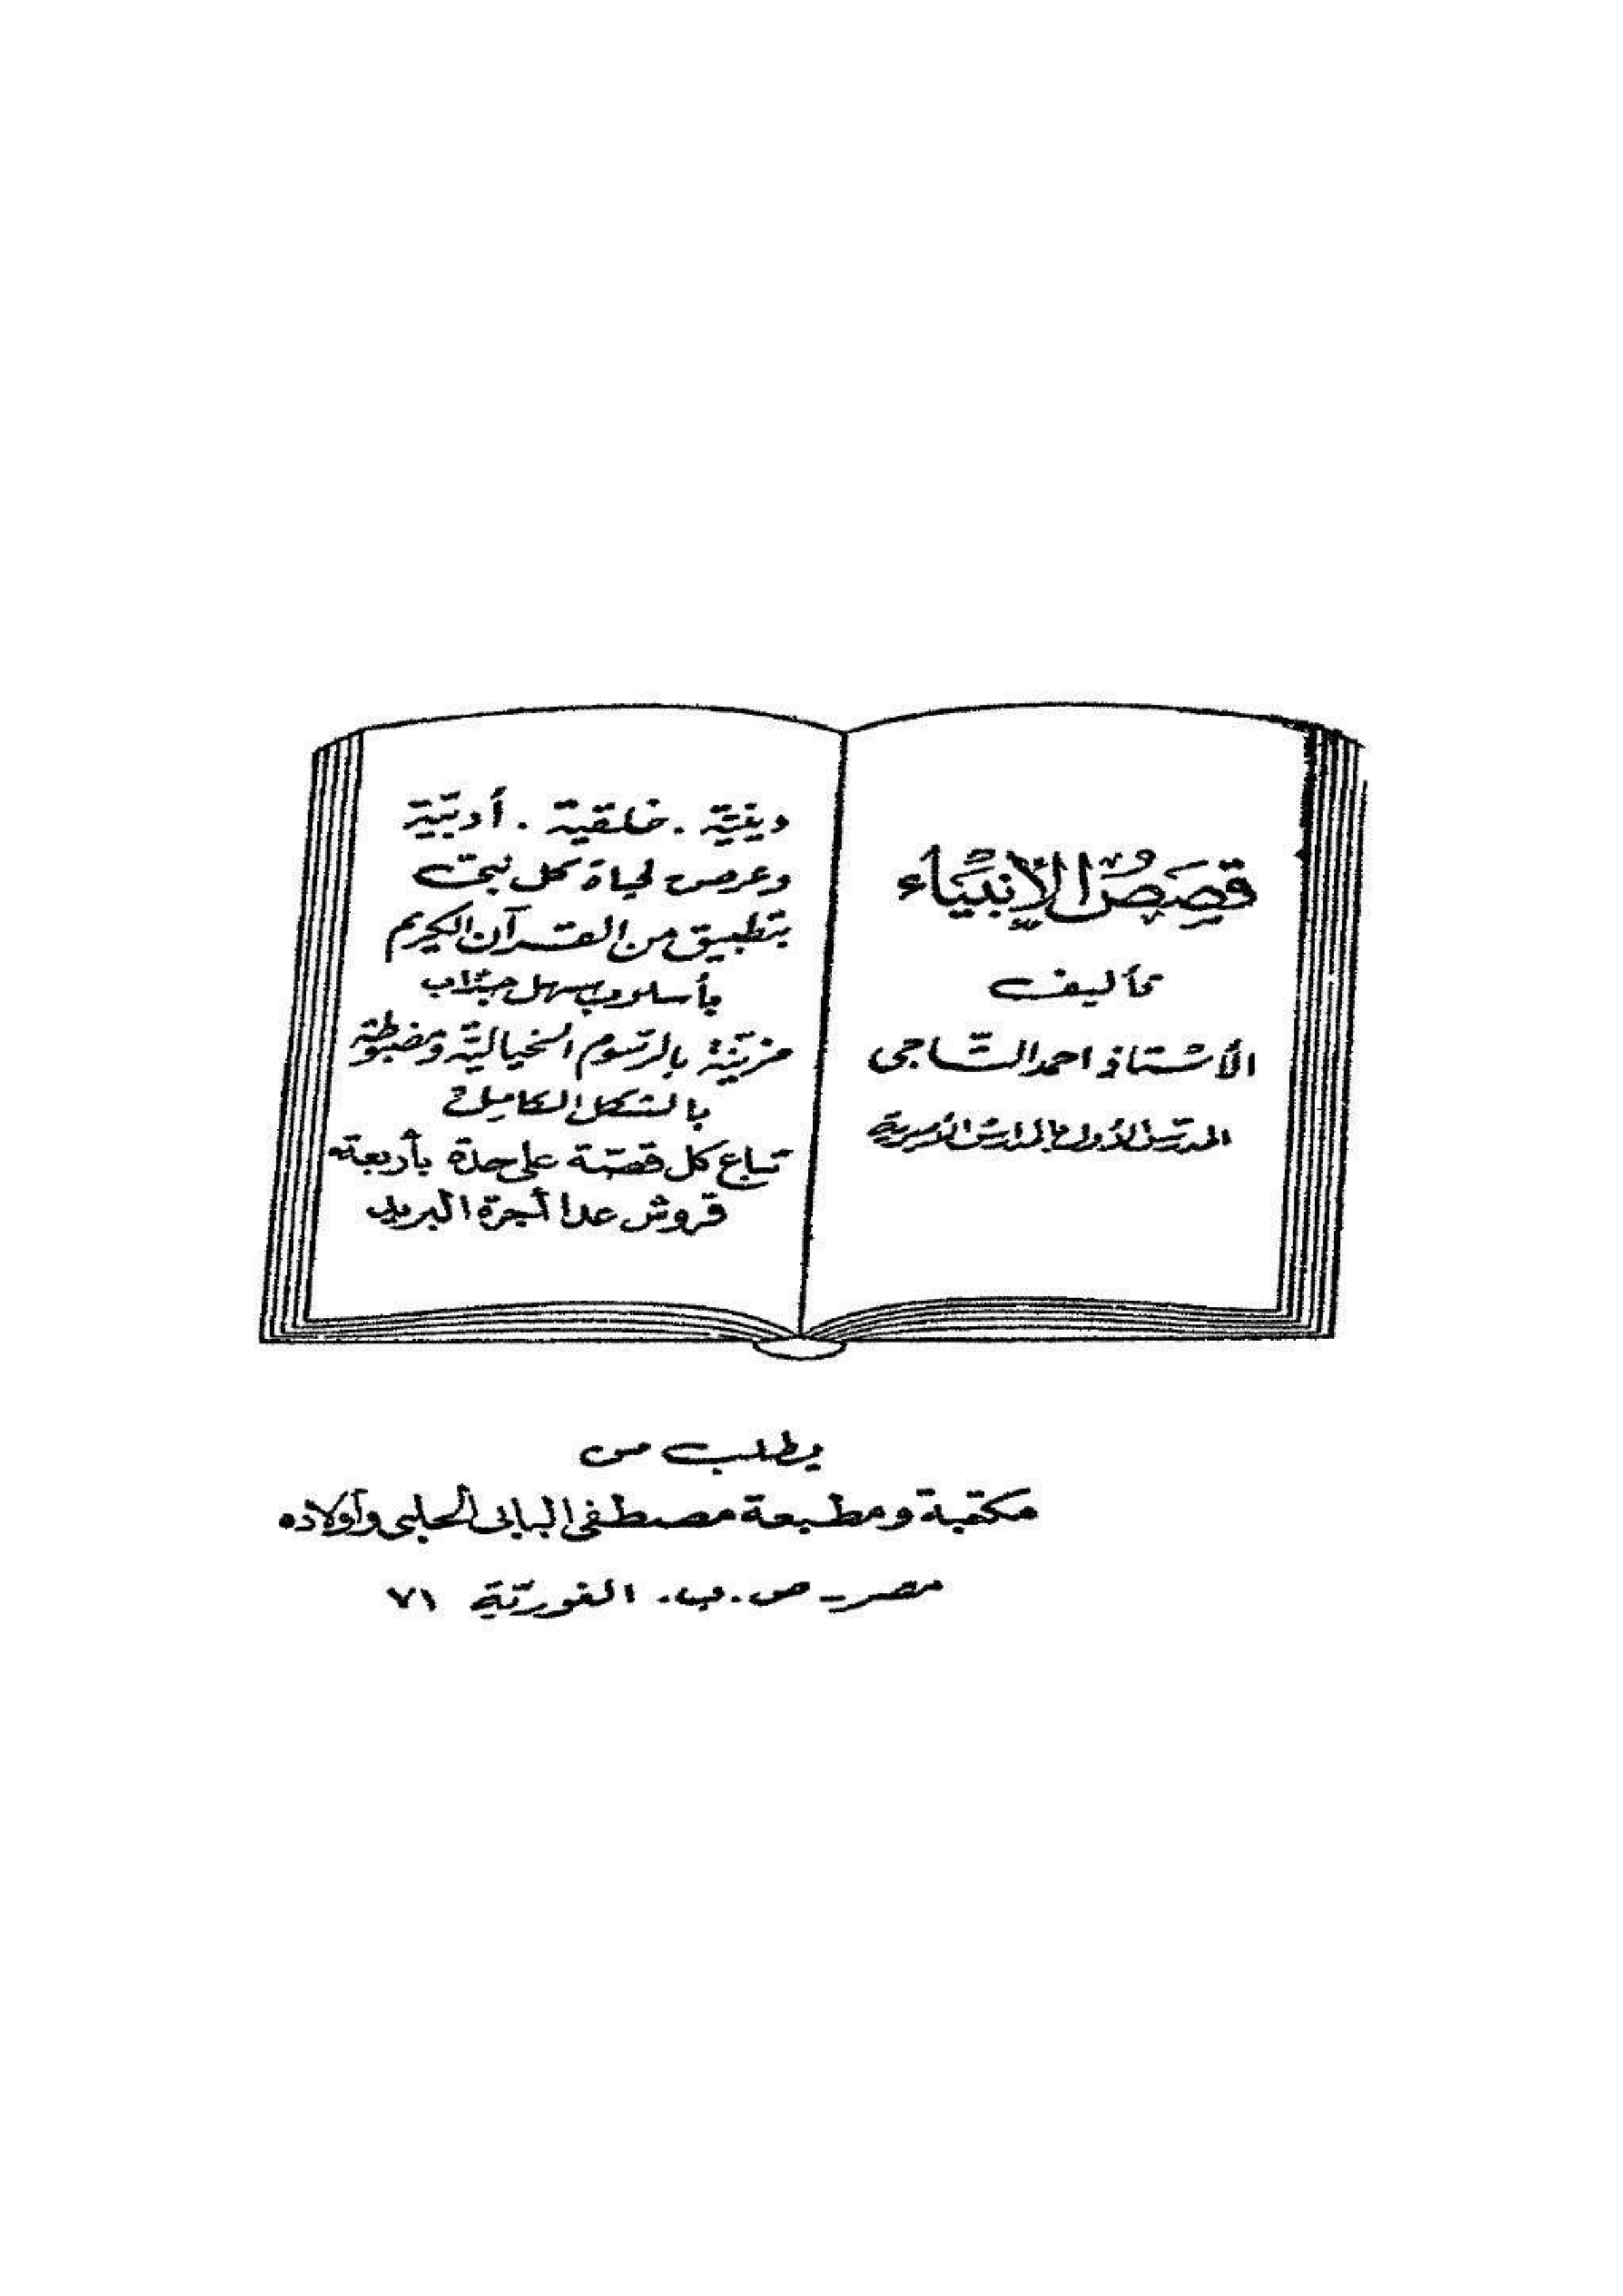 قصص الأنبياء
تأليف
الأستاذ احمد التاجى
المدرس الأول بالمدارس الأميرية
دينيّة . خلقية . أدبيّة
وعرض لحياة كل نبىّ
بتطبيق من القرآن الكريم
بأسلوب سهل جذّاب
مزيّنة بالرّسوم الخياليّة ومضبوطة
بالشكل الكامل
تباع كل قصّة على حدة بأربعة
قروش عدا أجرة البريد
يطلب من
مكتبة ومطبعة مصطفى البابى الحلبى وأولاده
مصر - ص . ب . الغوريّة ٧١